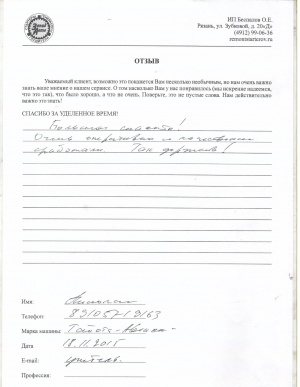 ИП Беспалов О.Е.
Рязань, ул. Зубковой, д. 20«Д»
(4912) 99-06-36
ОТЗЫВ
Уважаемый клиент, возможно это покажется Вам несколько необычным, но нам очень важно
знать ваше мнение о нашем сервисе. О том насколько Вам у нас понравилось (мы искренне надеемся,
что это так), что было хорошо, а что не очень. Поверьте, это не пустые слова. Нам действительно
важно это знать!
СПАСИБО ЗА УДЕЛЕННОЕ ВРЕМЯ!
Большое спасибо!
Очень оперативно и качественно
сработали. Так держать!
Имя:
Телефон:
Марка машины: Тойота-
Дата 18.11.2015
E-mail:
Профессия: